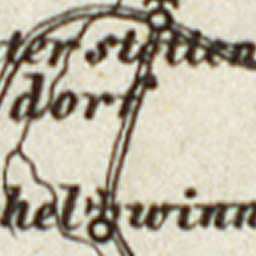 terstetten
dorf
helwinn